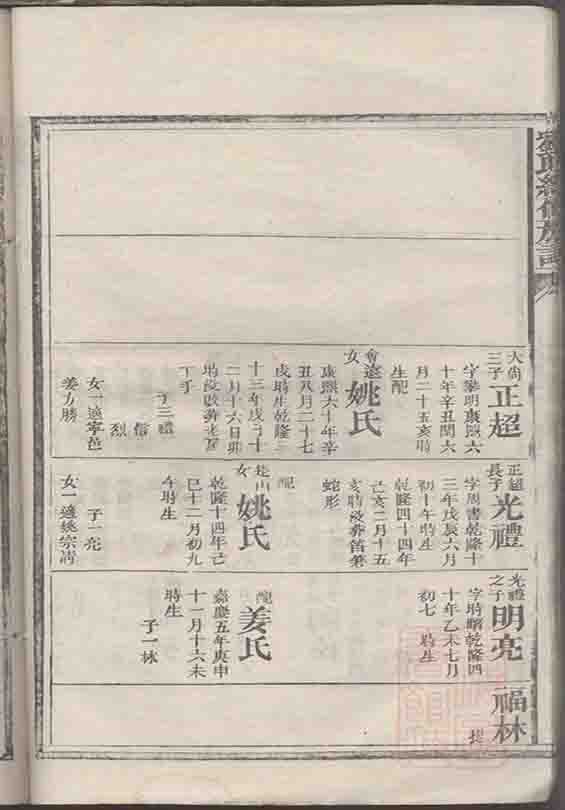 氏續修族譜
大尚
三子
正超
字攀明康熙六
十年辛丑閏六
月二十五亥時
生配
會遠
女
姚氏
康熙六十年辛
丑八月二十七
戌時生乾隆三
十三年戊子十
二月十六日卯
時歿
子三禮
信
烈
女一適寧邑
姜力勝
正超
長子
光禮
字周書乾隆十
三年戊辰六月
初十午時生
乾隆四十四年
己亥二月十五
亥時歿葬
蛇形
配
女
姚氏
乾隆十四年己
巳十二月初九
午時生
子一亮
女一適姚宗
光禮
之子
明亮
字時曙乾隆四
十年乙未七月
初七 時生
配
姜氏
嘉慶五年庚申
十一月十六未
時生
子一林
福林